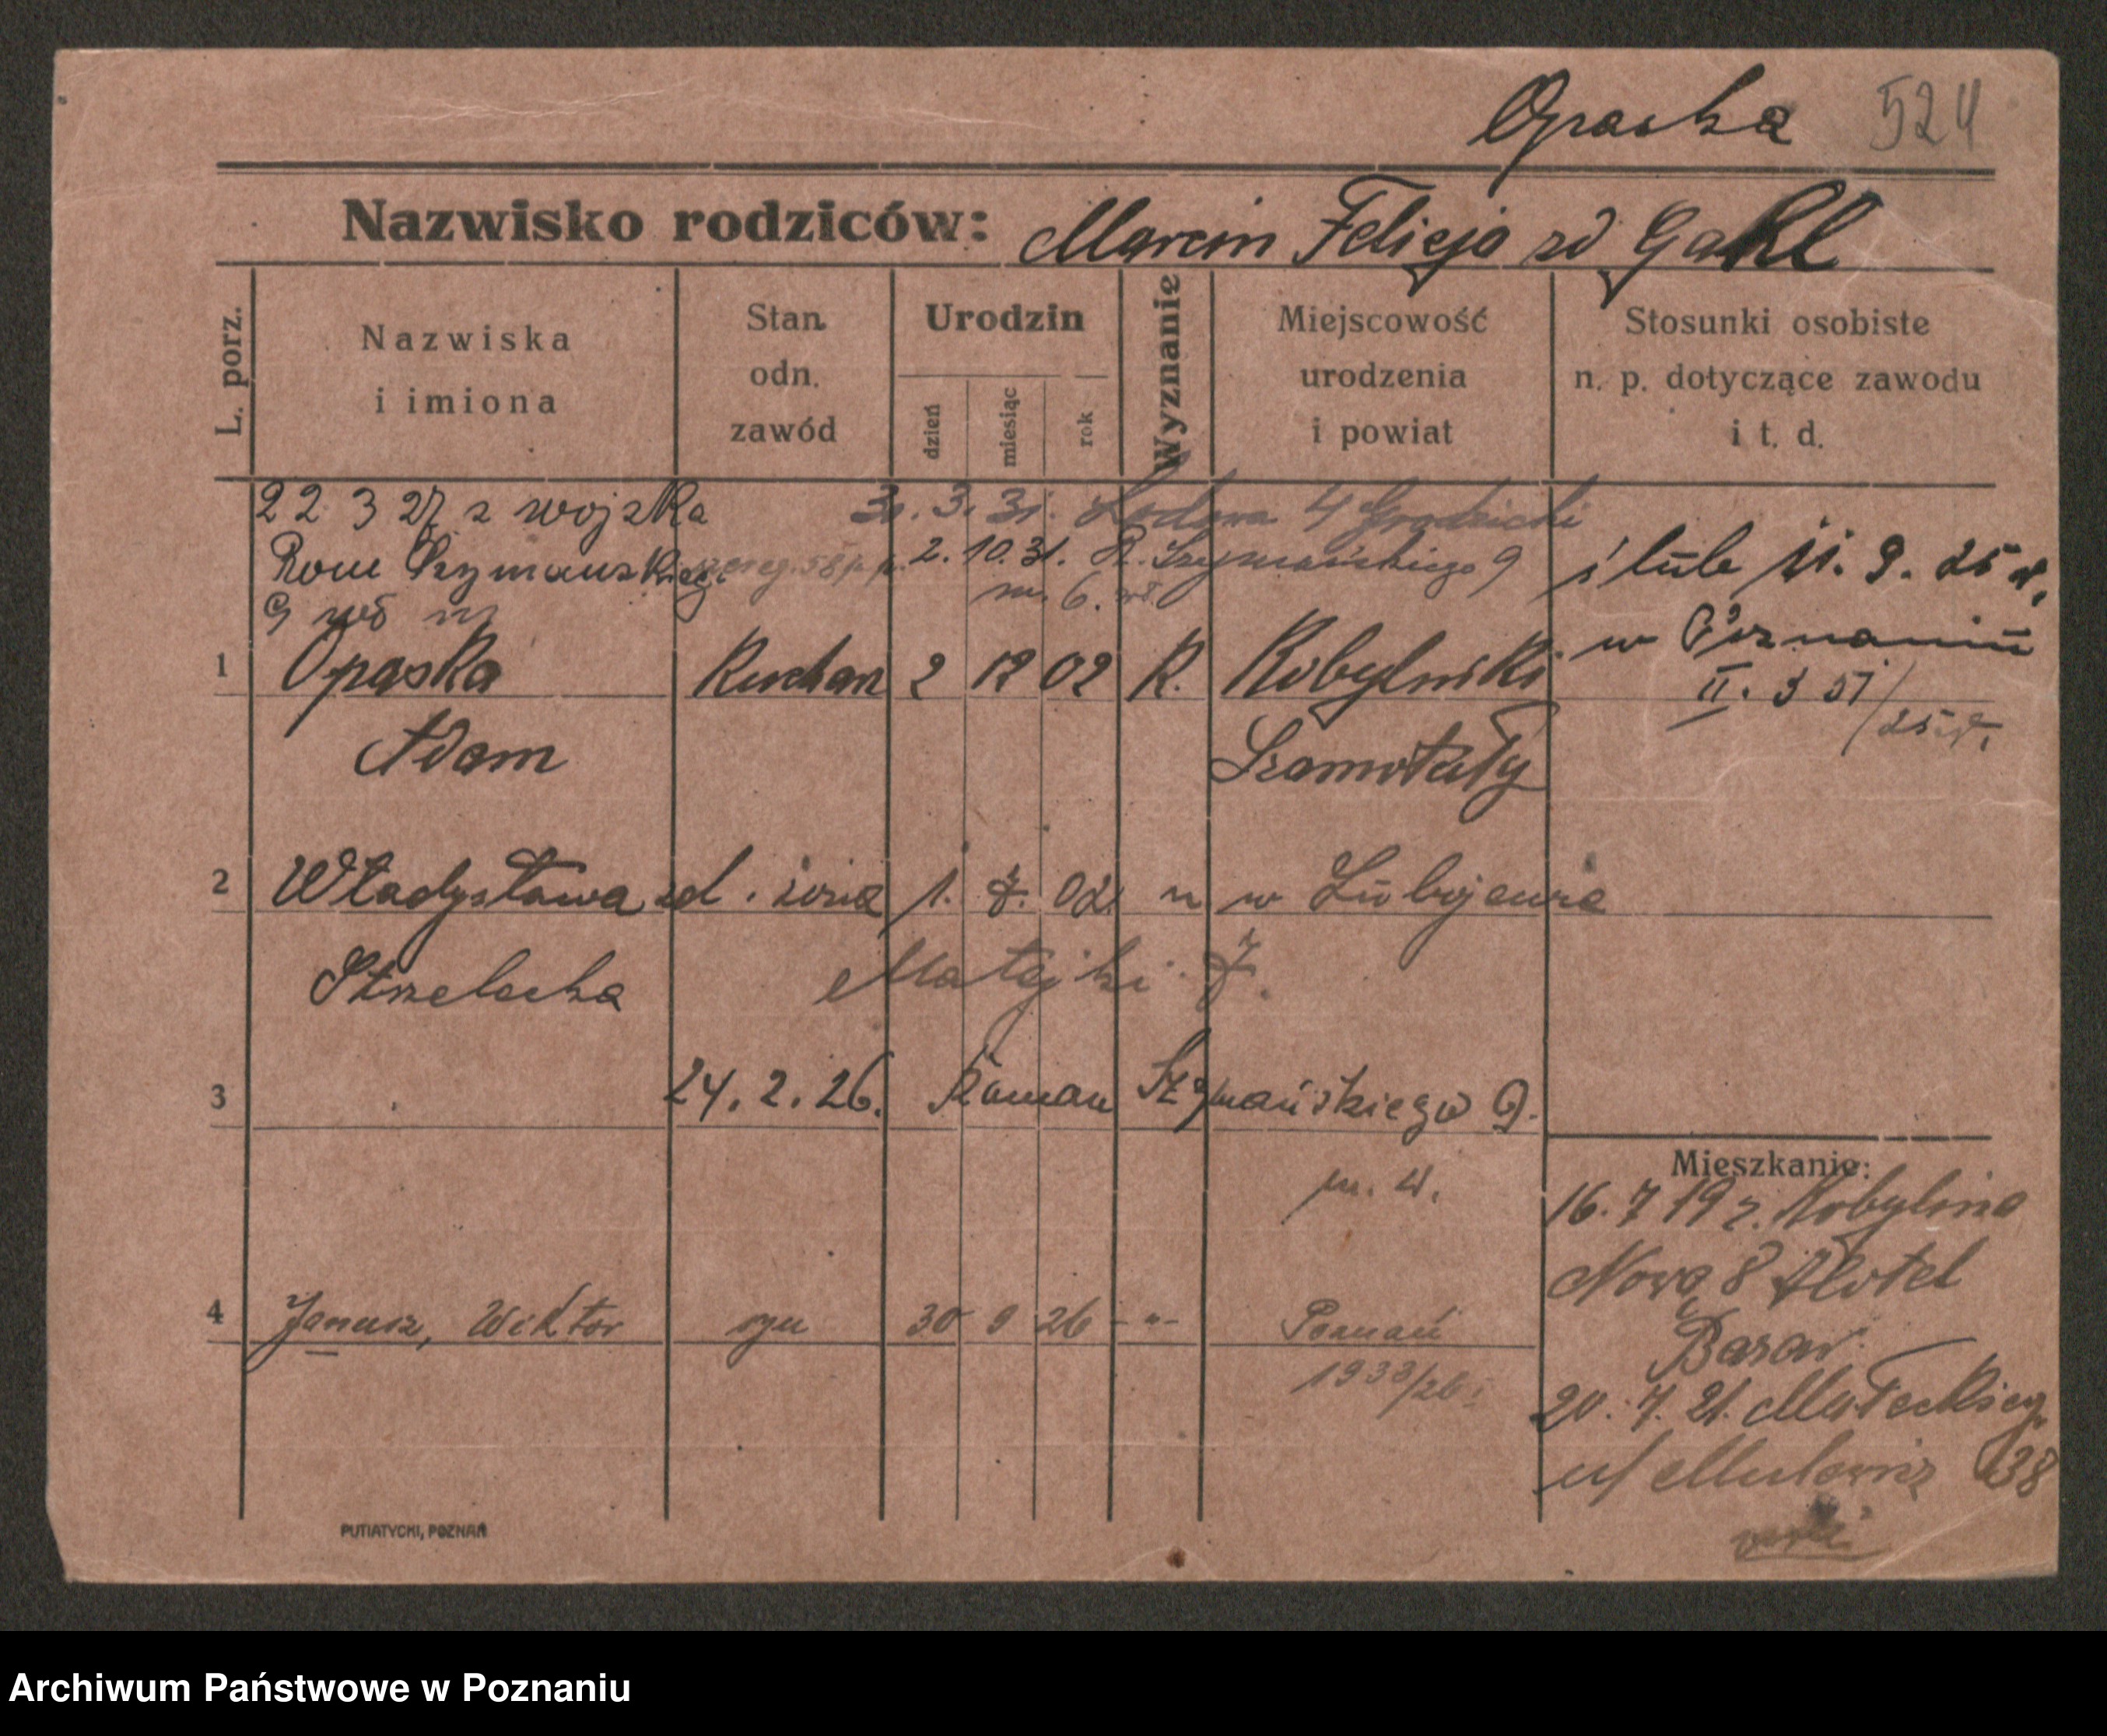 Opaska 524
Nazwisko rodziców: Marcin Felicja zd Gahl
L. porz.
Nazwiska
i imiona
Stan
odn.
zawód
Urodzin
dzień
miesiąc
rok
Wyznanie
Miejscowość
urodzenia
i powiat
Stosunki osobiste
n. p. dotyczące zawodu
i t. d.
22 3 27 z wojska
3. 31. 4 Grodzicki
Rom Szymanskiego
58 p.p. 2. 10. 31. R. Szymańskiego 9
m. 6.
9
ślub 11. 9. 25 r.
w Poznaniu
II. 351/25 r.
1 Opaska 2 12 02 R.
Adam
Szamotuły
2 Władysława zd. żona 1. 7. 02 w
Strzelecka
Matejki 7.
3 24. 2. 26. Roman Szymańskiego 9.
m. 4.
4 Janusz, Wiktor syn 30 9 26 -"- Poznań
1933/26.
Mieszkanie:
16. 7 19 z. Kobylina
Nowa 8 Hotel
Bazar
20. 7. 21. Małeckieg.
38
PUTIATYCKI, POZNAŃ
Archiwum Państwowe w Poznaniu